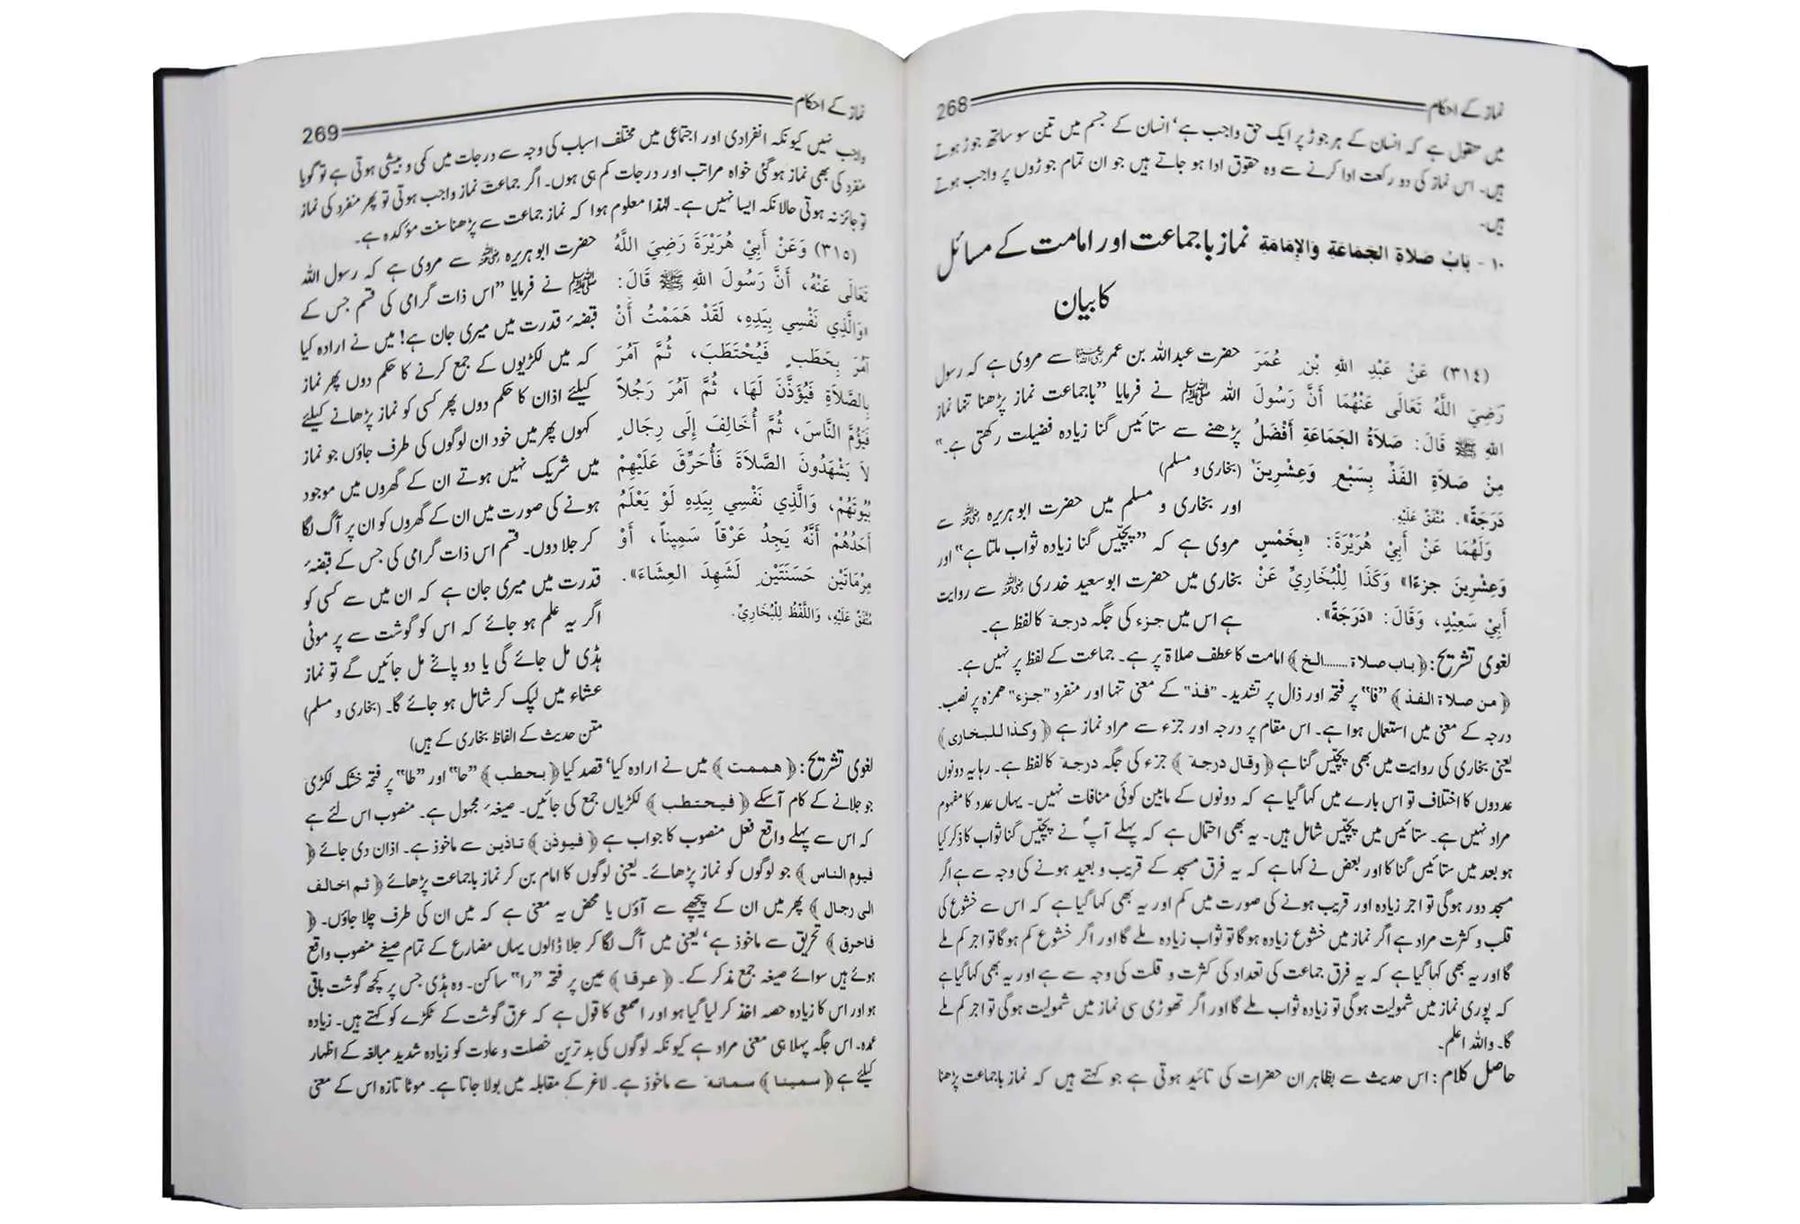 نماز کے احکام 268
میں منقول ہے کہ انسان کے ہر جوڑ پر ایک حق واجب ہے' انسان کے جسم میں تین سو ساٹھ جوڑ ہوتے
ہیں۔ اس نماز کی دو رکعت ادا کرنے سے وہ حقوق ادا ہو جاتے ہیں جو ان تمام جوڑوں پر واجب ہوتے
ہیں۔
١٠ - بَابُ صَلَاةِ الجَمَاعَةِ وَالإِمَامَةِ نماز باجماعت اور امامت کے مسائل
کا بیان
(٣١٤) عَنْ عَبْدِ اللهِ بْنِ عُمَرَ
رَضِيَ اللَّهُ تَعَالَى عَنْهُمَا أَنَّ رَسُولَ
اللهِ ﷺ قَالَ: صَلَاةُ الجَمَاعَةِ أَفْضَلُ
مِنْ صَلَاةِ الفَذِّ بِسَبْعٍ وَعِشْرِينَ
دَرَجَةً». مُتَّفَقٌ عَلَيْهِ.
وَلَهُمَا عَنْ أَبِيْ هُرَيْرَةَ: «بِخَمْسٍ
وَعِشْرِينَ جزءًا» وَكَذَا لِلْبُخَارِيِّ عَنْ
أَبِيْ سَعِيْدٍ، وَقَالَ: «دَرَجَةً».
حضرت عبداللہ بن عمر رضی اللہ عنہما سے مروی ہے کہ رسول
اللہ ﷺ نے فرمایا "باجماعت نماز پڑھنا تنہا نماز
پڑھنے سے ستائیس گنا زیادہ فضیلت رکھتی ہے۔"
(بخاری و مسلم)
اور بخاری و مسلم میں حضرت ابو ہریرہ رضی اللہ عنہ سے
مروی ہے کہ "پچیس گنا زیادہ ثواب ملتا ہے" اور
بخاری میں حضرت ابو سعید خدری رضی اللہ عنہ سے روایت
ہے اس میں جزء کی جگہ درجۃ کا لفظ ہے۔
لغوی تشریح: ﴿باب صلاة ......الخ﴾ امامت کا عطف صلاۃ پر ہے۔ جماعت کے لفظ پر نہیں ہے۔
﴿من صلاة الفذ﴾ "فا" پر فتحہ اور ذال پر تشدید۔ "فذ" کے معنی تنہا اور منفرد "جزء" ہمزہ پر نصب۔
درجہ کے معنی میں استعمال ہوا ہے۔ اس مقام پر درجہ اور جزء سے مراد نماز ہے ﴿وكذا للبخاری﴾
یعنی بخاری کی روایت میں بھی پچیس گنا ہے ﴿وقال درجۃ﴾ جزء کی جگہ درجۃ کا لفظ ہے۔ رہا یہ دونوں
عددوں کا اختلاف تو اس بارے میں کہا گیا ہے کہ دونوں کے مابین کوئی منافات نہیں۔ یہاں عدد کا مفہوم
مراد نہیں ہے۔ ستائیس میں پچیس شامل ہیں۔ یہ بھی احتمال ہے کہ پہلے آپؐ نے پچیس گنا ثواب کا ذکر کیا
ہو بعد میں ستائیس گنا کا اور بعض نے کہا ہے کہ یہ فرق مسجد کے قریب و بعید ہونے کی وجہ سے ہے اگر
مسجد دور ہوگی تو اجر زیادہ اور قریب ہونے کی صورت میں کم اور یہ بھی کہا گیا ہے کہ اس سے خشوع کی
قلت و کثرت مراد ہے اگر نماز میں خشوع زیادہ ہوگا تو ثواب زیادہ ملے گا اور اگر خشوع کم ہوگا تو اجر کم ملے
گا اور یہ بھی کہا گیا ہے کہ یہ فرق جماعت کی تعداد کی کثرت و قلت کی وجہ سے ہے اور یہ بھی کہا گیا ہے
کہ پوری نماز میں شمولیت ہوگی تو زیادہ ثواب ملے گا اور اگر تھوڑی سی نماز میں شمولیت ہوگی تو اجر کم ملے
گا۔ واللہ اعلم۔
حاصل کلام: اس حدیث سے بظاہر ان حضرات کی تائید ہوتی ہے جو کہتے ہیں کہ نماز باجماعت پڑھنا
نماز کے احکام 269
واجب نہیں کیونکہ انفرادی اور اجتماعی میں مختلف اسباب کی وجہ سے درجات میں کمی و بیشی ہوتی ہے تو گویا
منفرد کی بھی نماز ہو گئی خواہ مراتب اور درجات کم ہی ہوں۔ اگر جماعت نماز واجب ہوتی تو پھر منفرد کی نماز
تو جائز نہ ہوتی حالانکہ ایسا نہیں ہے۔ لہٰذا معلوم ہوا کہ نماز جماعت سے پڑھنا سنت مؤکدہ ہے۔
(٣١٥) وَعَنْ أَبِيْ هُرَيْرَةَ رَضِيَ اللَّهُ
تَعَالَى عَنْهُ، أَنَّ رَسُولَ اللهِ ﷺ قَالَ:
«وَالَّذِي نَفْسِي بِيَدِهِ، لَقَدْ هَمَمْتُ أَنْ
آمُرَ بِحَطَبٍ فَيُحْتَطَبَ، ثُمَّ آمُرَ
بِالصَّلَاةِ فَيُؤَذَّنَ لَهَا، ثُمَّ آمُرَ رَجُلاً
فَيَؤُمَّ النَّاسَ، ثُمَّ أُخَالِفَ إِلَى رِجَالٍ
لَا يَشْهَدُونَ الصَّلَاةَ فَأُحَرِّقَ عَلَيْهِمْ
بُيُوتَهُمْ، وَالَّذِي نَفْسِي بِيَدِهِ لَوْ يَعْلَمُ
أَحَدُهُمْ أَنَّهُ يَجِدُ عَرْقاً سَمِيناً، أَوْ
مِرْمَاتَيْنِ حَسَنَتَيْنِ لَشَهِدَ العِشَاءَ».
مُتَّفَقٌ عَلَيْهِ، وَاللَّفْظُ لِلْبُخَارِيِّ.
حضرت ابو ہریرہ رضی اللہ عنہ سے مروی ہے کہ رسول اللہ
ﷺ نے فرمایا "اس ذات گرامی کی قسم جس کے
قبضۂ قدرت میں میری جان ہے! میں نے ارادہ کیا
کہ میں لکڑیوں کے جمع کرنے کا حکم دوں پھر نماز
کیلئے اذان کا حکم دوں پھر کسی کو نماز پڑھانے کیلئے
کہوں پھر میں خود ان لوگوں کی طرف جاؤں جو نماز
میں شریک نہیں ہوتے ان کے گھروں میں موجود
ہونے کی صورت میں ان کے گھروں کو ان پر آگ لگا
کر جلا دوں۔ قسم اس ذات گرامی کی جس کے قبضۂ
قدرت میں میری جان ہے کہ ان میں سے کسی کو
اگر یہ علم ہو جائے کہ اس کو گوشت سے پر موٹی
ہڈی مل جائے گی یا دو پائے مل جائیں گے تو نماز
عشاء میں لپک کر شامل ہو جائے گا۔ (بخاری و مسلم)
متن حدیث کے الفاظ بخاری کے ہیں)
لغوی تشریح: ﴿هممت﴾ میں نے ارادہ کیا' قصد کیا ﴿بحطب﴾ "حا" اور "طا" پر فتحہ خشک لکڑی
جو جلانے کے کام آسکے ﴿فيحتطب﴾ لکڑیاں جمع کی جائیں۔ صیغۂ مجہول ہے۔ منصوب اس لئے ہے
کہ اس سے پہلے واقع فعل منصوب کا جواب ہے ﴿فيوذن﴾ تاذین سے ماخوذ ہے۔ اذان دی جائے ﴿
فيوم الناس﴾ جو لوگوں کو نماز پڑھائے۔ یعنی لوگوں کا امام بن کر نماز باجماعت پڑھائے ﴿ثم اخالف
الى رجال﴾ پھر میں ان کے پیچھے سے آؤں یا محض یہ معنی ہے کہ میں ان کی طرف چلا جاؤں۔ ﴿
فاحرق﴾ تحریق سے ماخوذ ہے' یعنی میں آگ لگا کر جلا ڈالوں یہاں مضارع کے تمام صیغے منصوب واقع
ہوئے ہیں سوائے صیغہ جمع مذکر کے۔ ﴿عرقا﴾ عین پر فتحہ "را" ساکن۔ وہ ہڈی جس پر کچھ گوشت باقی
ہو اور اس کا زیادہ حصہ اخذ کر لیا گیا ہو اور اصمعی کا قول ہے کہ عرق گوشت کے ٹکڑے کو کہتے ہیں۔ زیادہ
عمدہ۔ اس جگہ پہلا ہی معنی مراد ہے کیونکہ لوگوں کی بدترین خصلت و عادت کو زیادہ شدید مبالغہ کے اظہار
کیلئے ہے ﴿سمینا﴾ سمانۃ سے ماخوذ ہے۔ لاغر کے مقابلہ میں بولا جاتا ہے۔ موٹا تازہ اس کے معنی